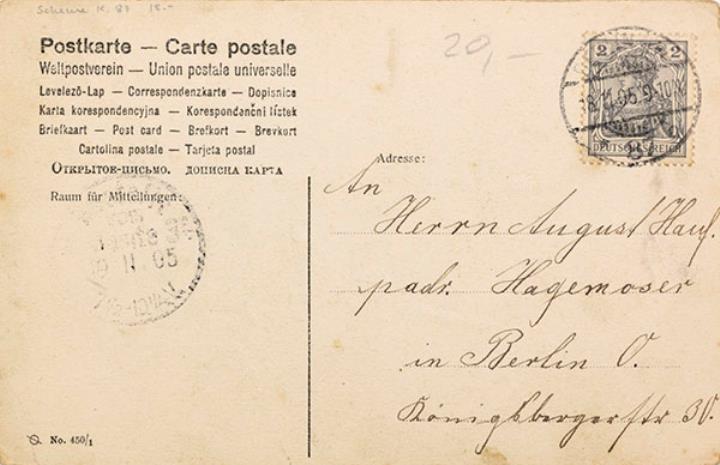 Scheune K. 87 18.-
20,-
Postkarte — Carte postale
Weltpostverein — Union postale universelle
Levelező-Lap — Correspondenzkarte — Dopisnice
Karta korespondencyjna — Korespondenčni listek
Briefkaart — Post card — Brefkort — Brevkort
Cartolina postale — Tarjeta postal
Открытое-письмо. дописна карта
Raum für Mitteilungen:
11.05
2 2
18.11.05.9-10N.
DEUTSCHES REICH
Adresse:
An
Herrn August Hauf.
padr. Hagemoser
in Berlin O.
Königsbergerstr 30.
No. 450/1